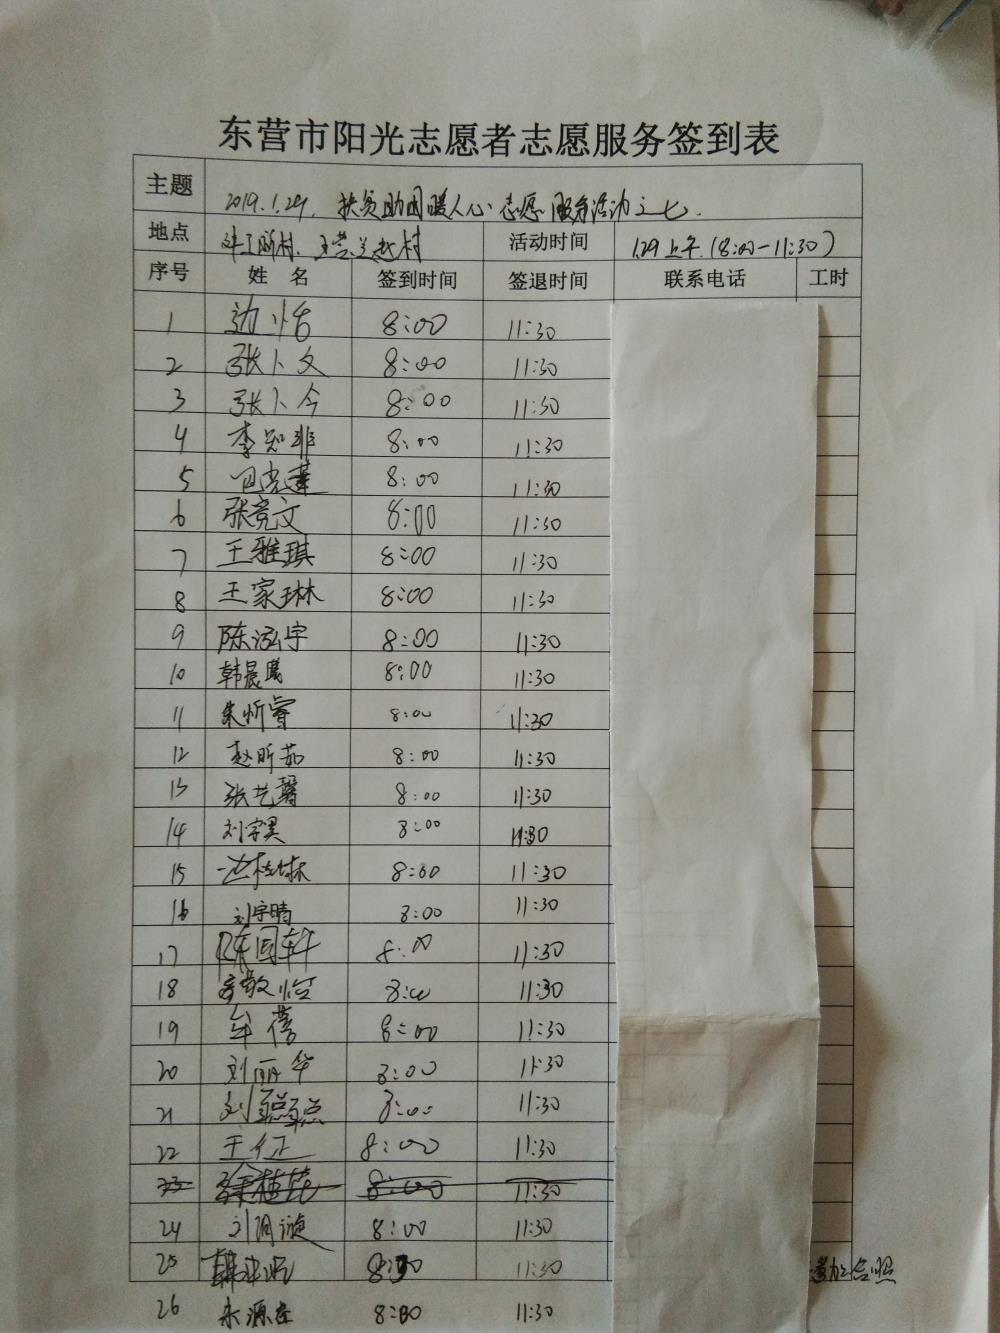 东营市阳光志愿者志愿服务签到表
主题 2019.1.29. 扶贫助困暖人心 志愿服务活动之七.
地点 村. 村 活动时间 1.29上午.(8:00-11:30)
序号 姓 名 签到时间 签退时间 联系电话 工时
1 边 8:00 11:30
2 张卜文 8:00 11:30
3 张卜今 8:00 11:30
4 李知非 8:00 11:30
5 8:00 11:30
6 张亮文 8:00 11:30
7 王雅琪 8:00 11:30
8 王家琳 8:00 11:30
9 陈泓宇 8:00 11:30
10 韩晨 8:00 11:30
11 朱忻睿 8:00 11:30
12 赵昕茹 8:00 11:30
13 张艺馨 8:00 11:30
14 刘宇昊 8:00 11:30
15 8:00 11:30
16 刘宇晴 8:00 11:30
17 陈国轩 8:00 11:30
18 8:00 11:30
19 牟蓓 8:00 11:30
20 刘丽华 8:00 11:30
21 刘聪聪 8:00 11:30
22 王 8:00 11:30
23 8:00 11:30
24 刘润 8:00 11:30
25 韩 8:30 11:30 合照
26 源 8:00 11:30